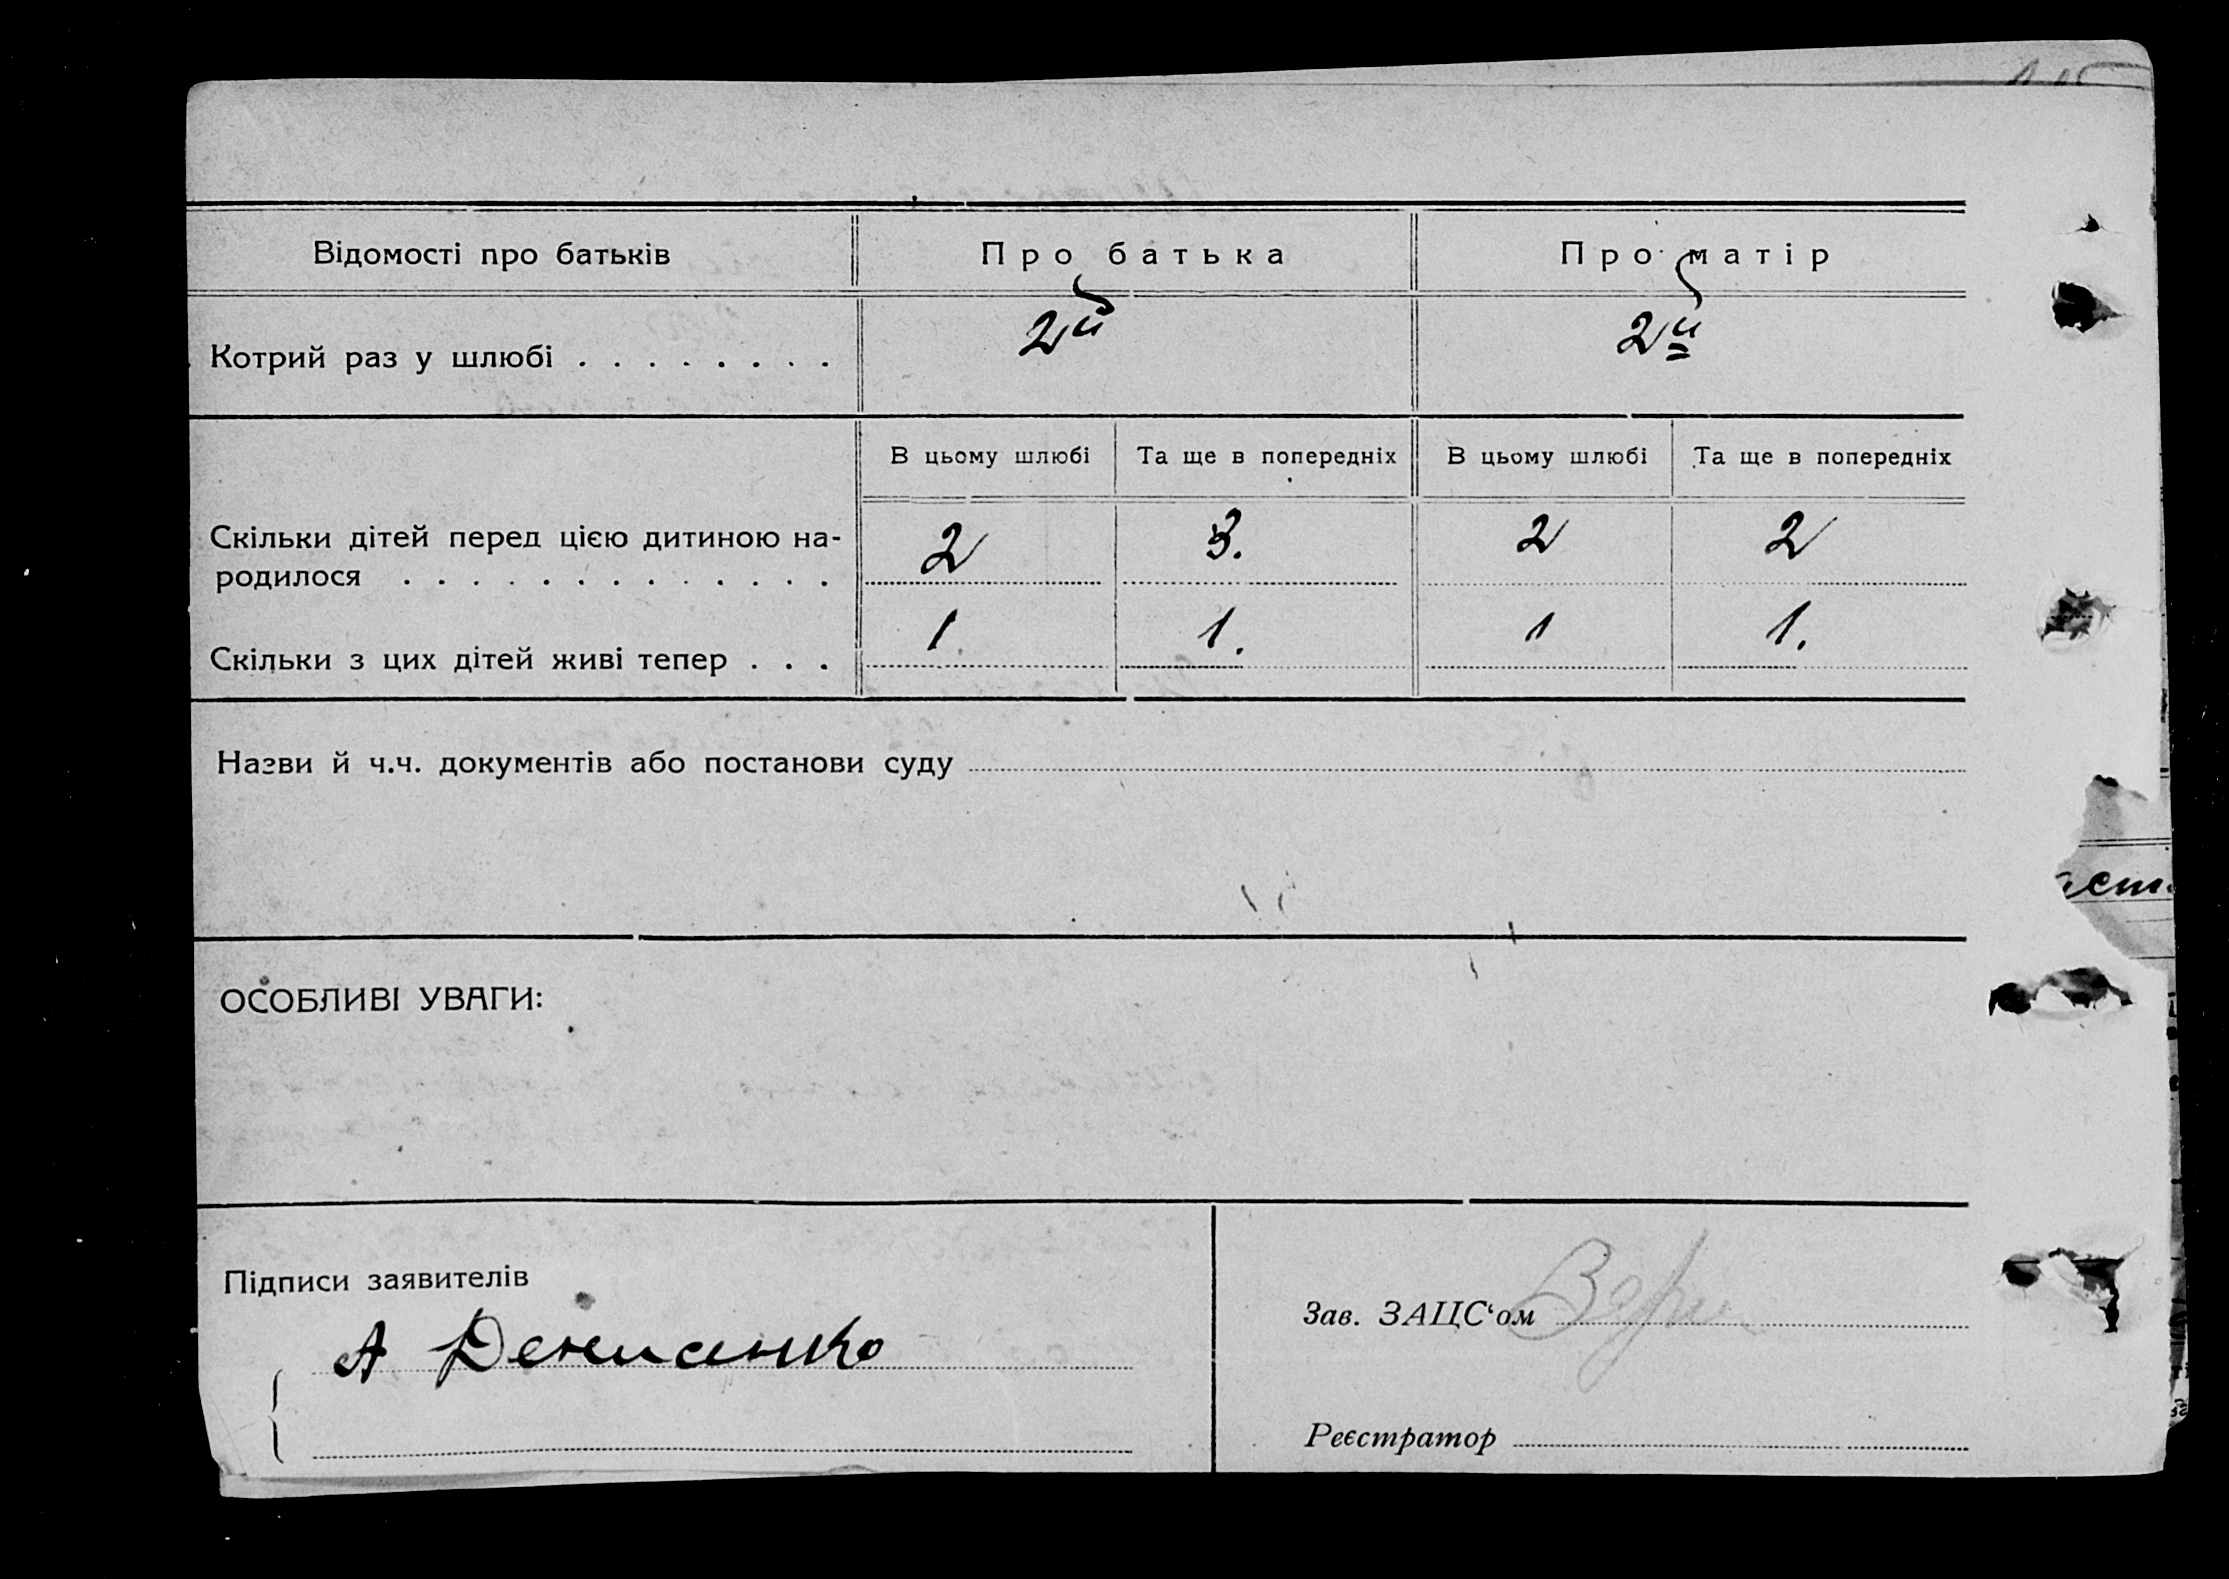 Відомості про батьків Про батька Про матір
Котрий раз у шлюбі . . . . . . . . 2й 2й
В цьому шлюбі Та ще в попередніх В цьому шлюбі Та ще в попередніх
Скільки дітей перед цією дитиною на-
родилося . . . . . . . . . . . . . 2 3. 2 2
Скільки з цих дітей живі тепер . . . 1. 1. 1 1.
Назви й ч.ч. документів або постанови суду
ОСОБЛИВІ УВАГИ:
Підписи заявителів
А Денисенко
Зав. ЗАЦС‘ом
Реєстратор